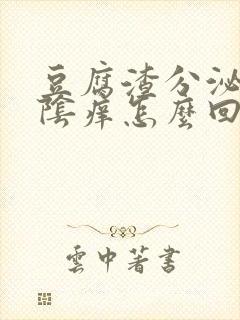 豆腐渣分泌
陰癢怎麼回
雲中著書